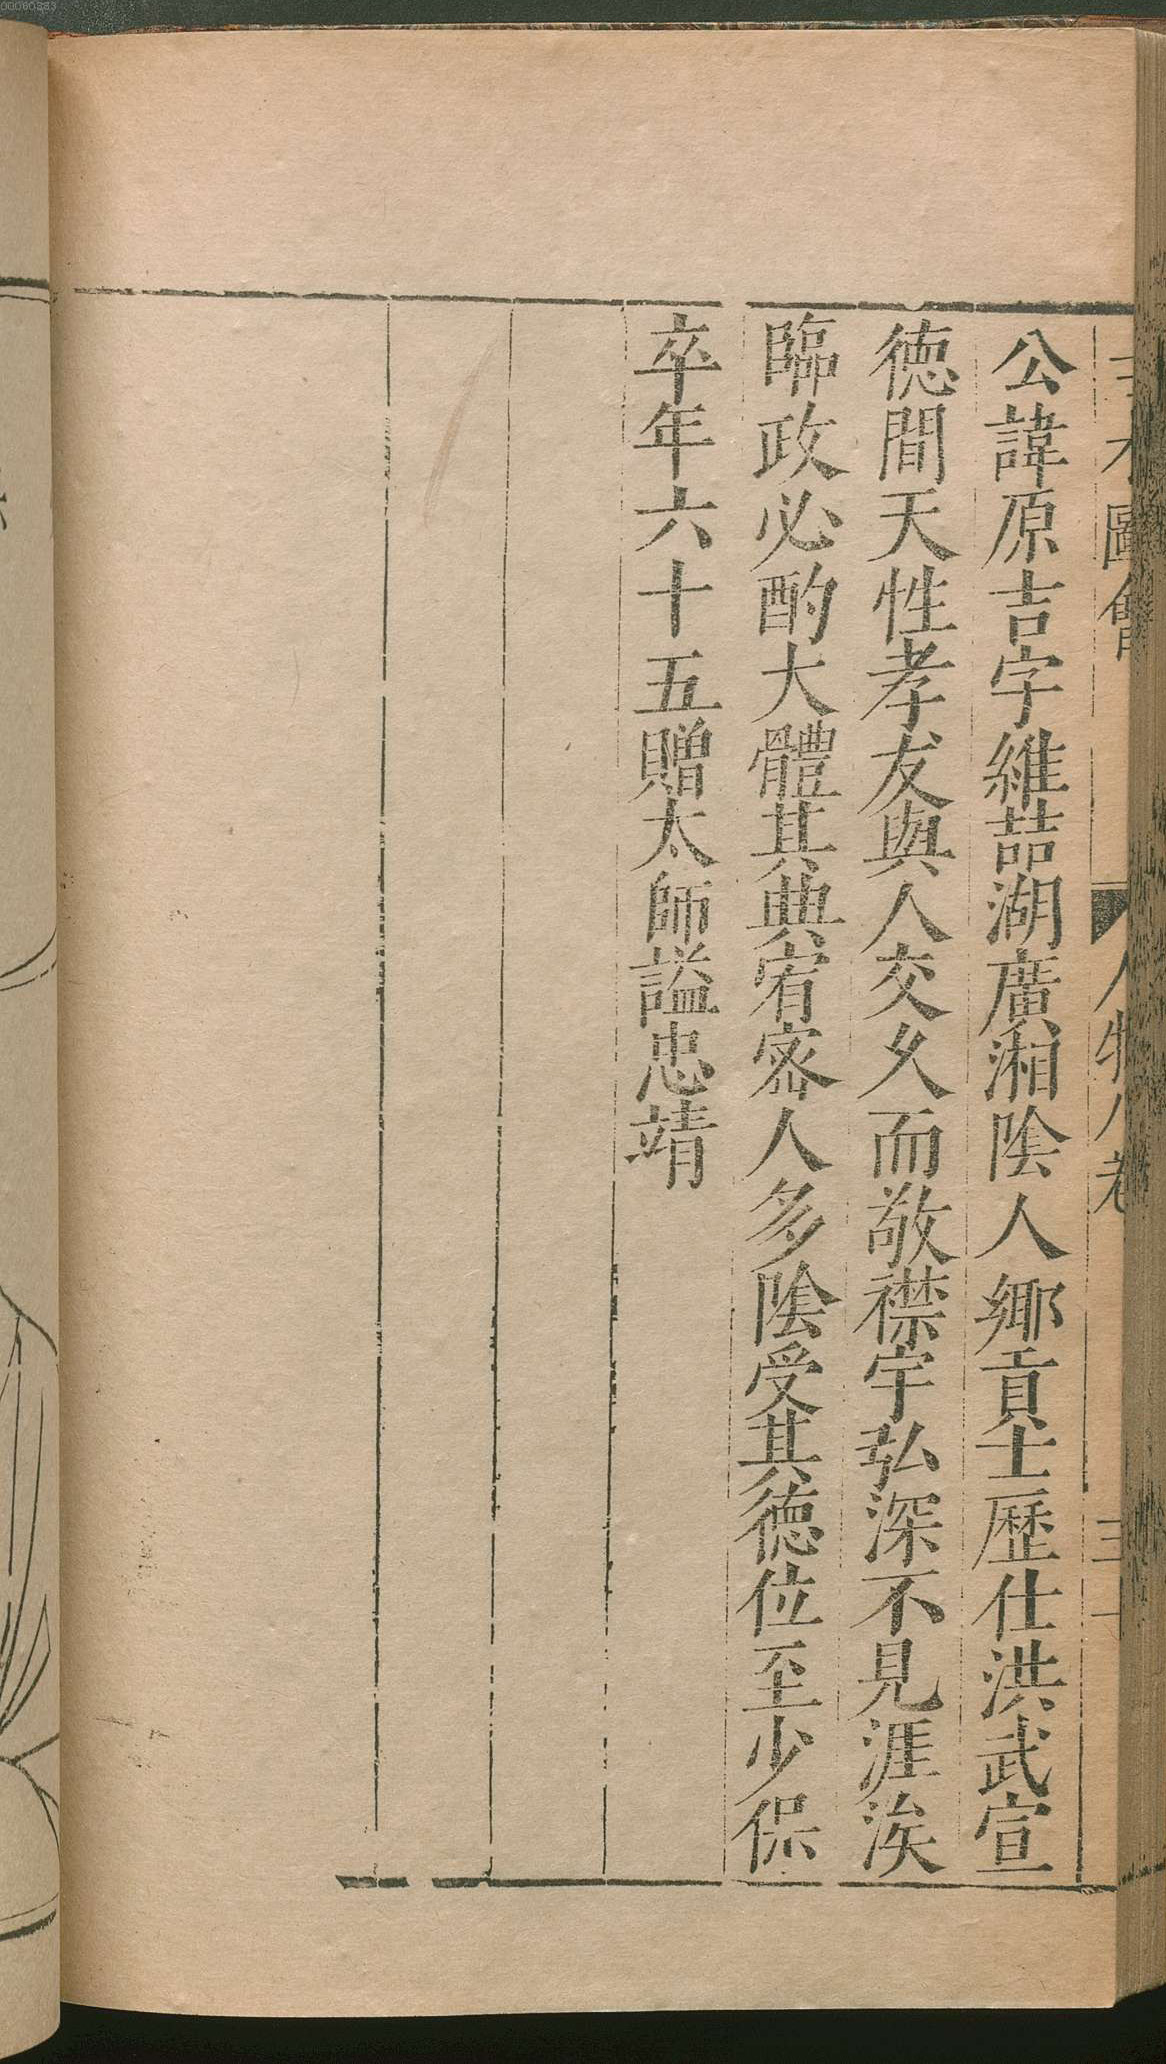 圖會 人物八卷
公諱原吉字維喆湖廣湘陰人鄉貢士歷仕洪武宣
德間天性孝友與人交久而敬襟宇弘深不見涯涘
臨政必酌大體其典宥密人多陰受其德位至少保
卒年六十五贈太師謚忠靖
00060383